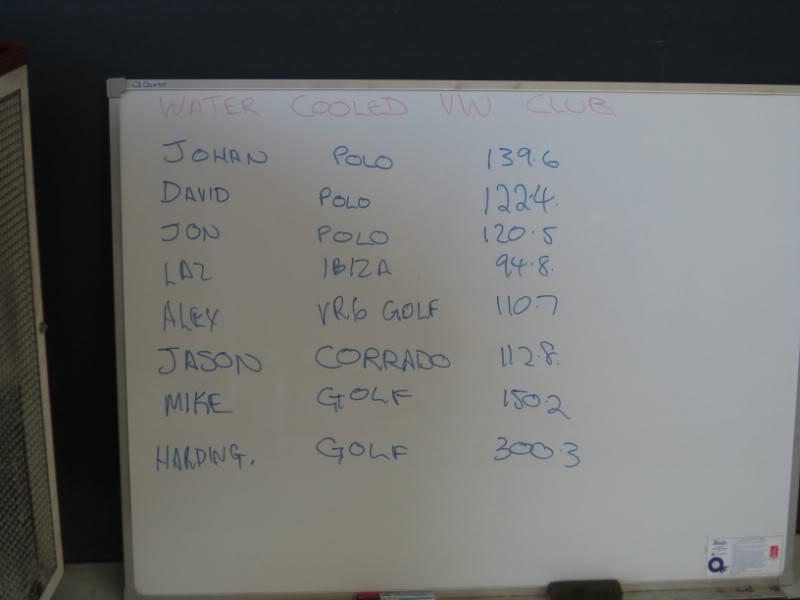 Quartet
WATER COOLED VW CLUB
JOHAN POLO 139.6
DAVID POLO 122.4.
JON POLO 120.5
LAZ IBIZA 94.8.
ALEX VR6 GOLF 110.7
JASON CORRADO 112.8.
MIKE GOLF 150.2
HARDING. GOLF 300.3